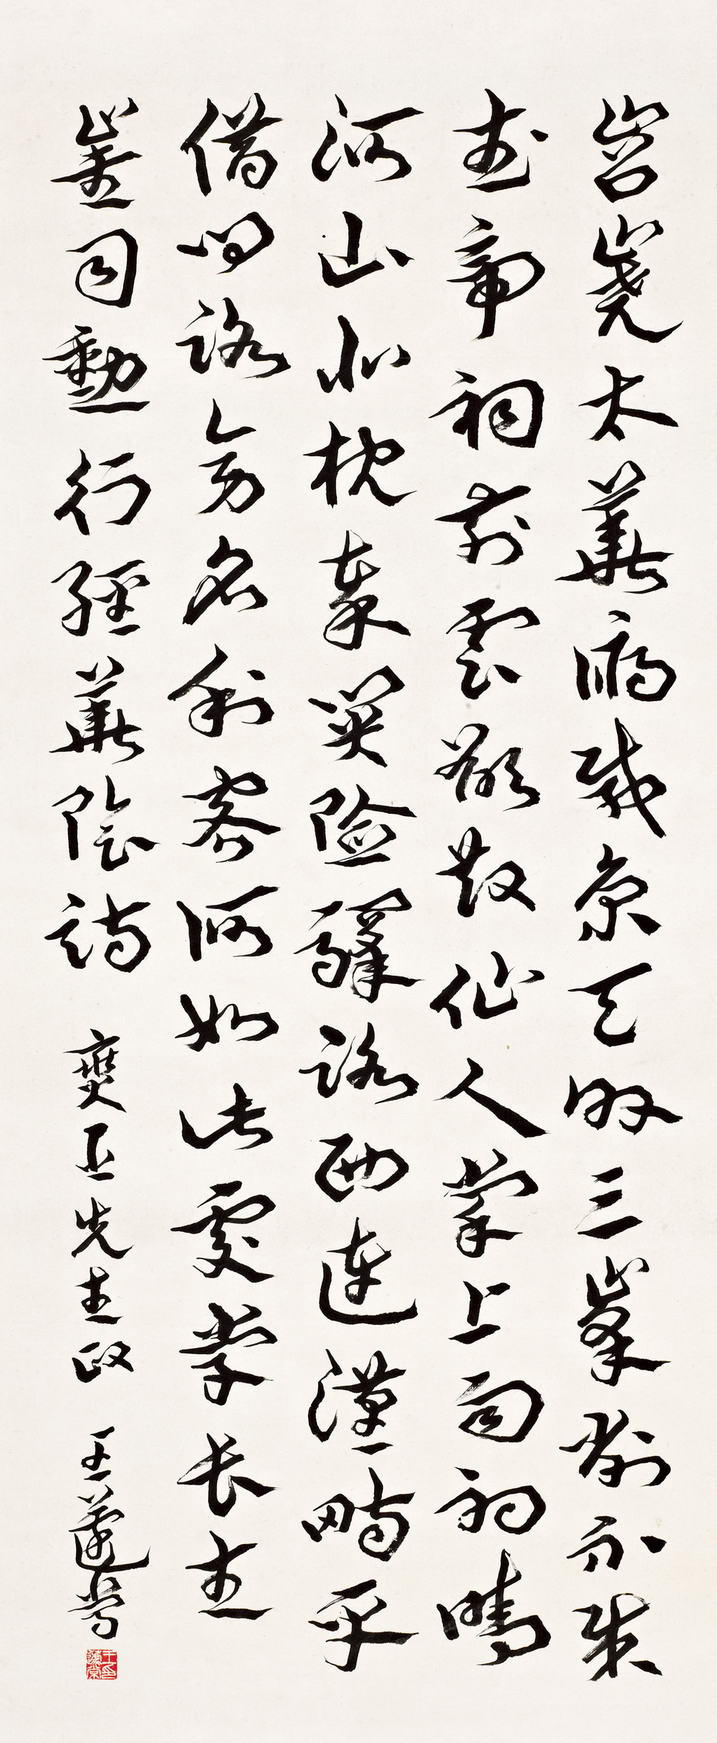 岧嶢太華俯咸京天外三峯削不成
武帝祠前雲欲散仙人掌上雨初晴
河山北枕秦關險驛路西連漢畤平
借問路旁名利客何如此處學長生
崔司勳行經華陰詩 先生政 王蘧常